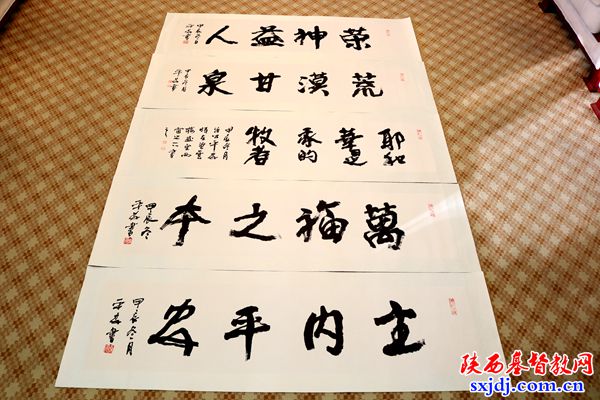 荣神益人
甲辰冬月
平安書
荒漠甘泉
甲辰冬月
平安書
耶和華是我的牧者
甲辰冬月
萬福之本
甲辰冬
平安書
主内平安
甲辰冬月
平安書
陕西基督教网
sxjdj.com.cn